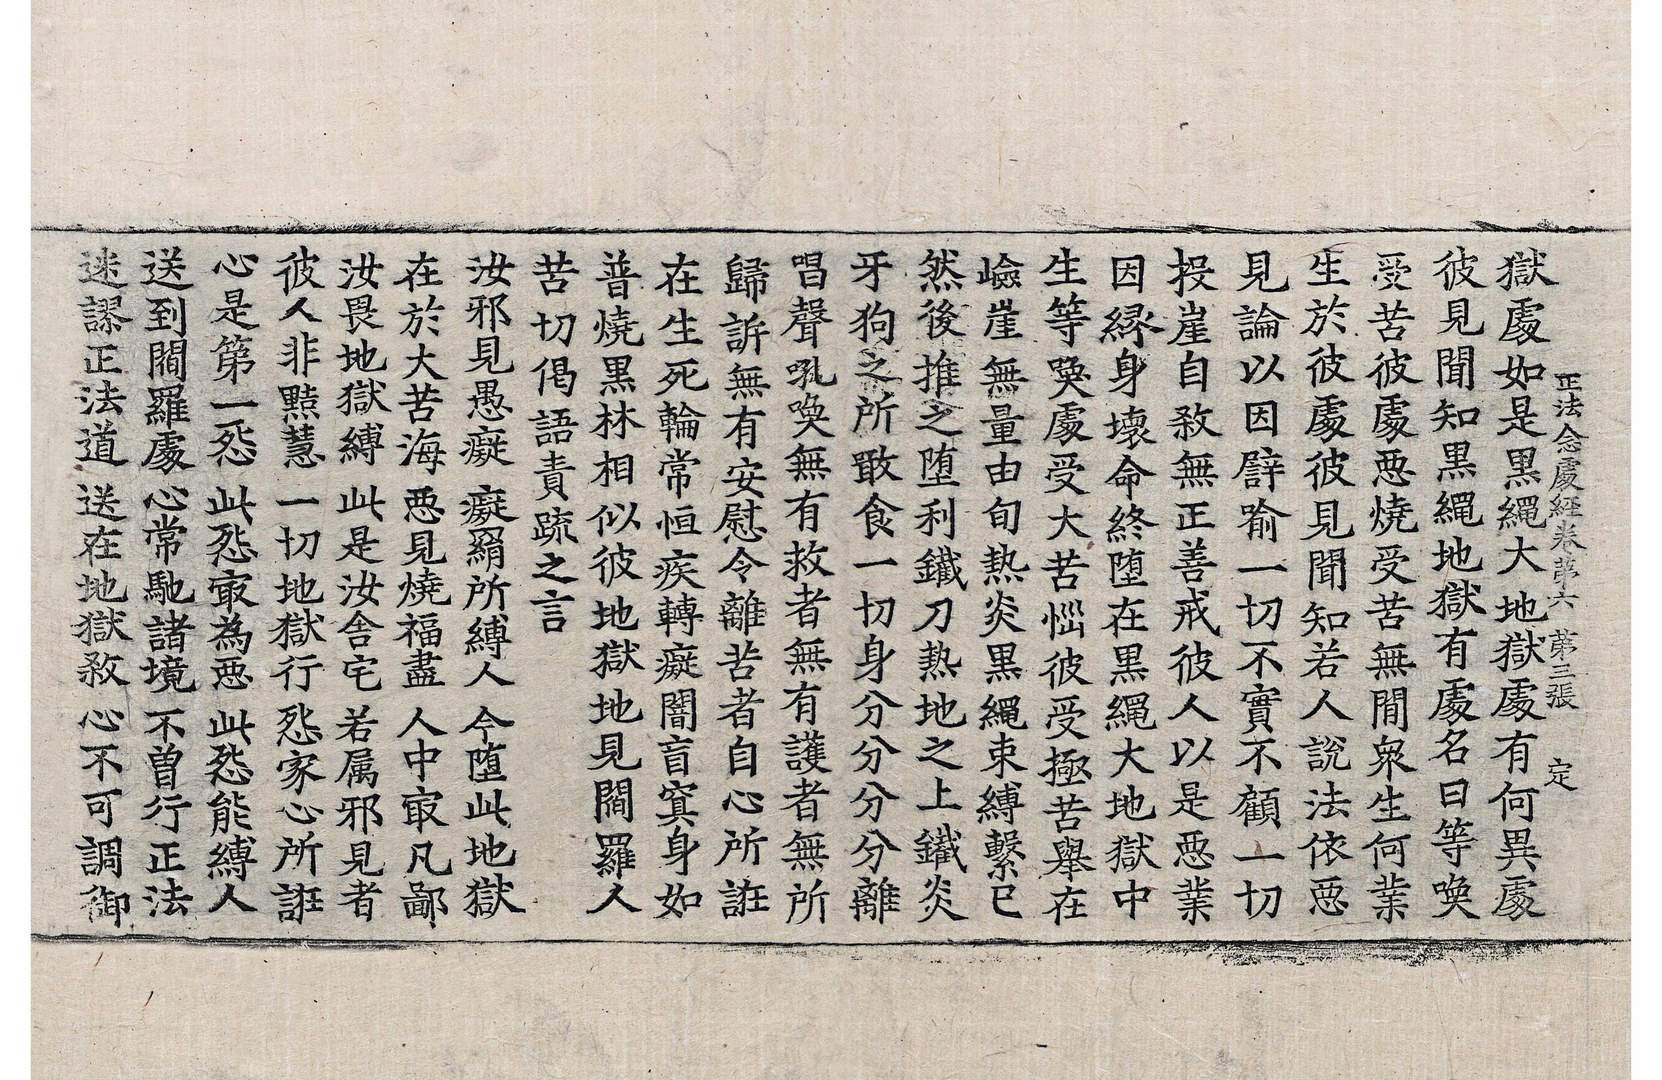 正法念處經卷第六 第三張 定
獄處如是黑繩大地獄處有何異處
彼見聞知黑繩地獄有處名曰等喚
受苦彼處惡燒受苦無間衆生何業
生於彼處彼見聞知若人說法依惡
見論以因譬喻一切不實不顧一切
投崖自殺無正善戒彼人以是惡業
因緣身壞命終墮在黑繩大地獄中
生等喚處受大苦惱彼受極苦舉在
嶮崖無量由旬熱炎黑繩束縛繫已
然後推之墮利鐵刀熱地之上鐵炎
牙狗之所噉食一切身分分分分離
唱聲吼喚無有救者無有護者無所
歸訴無有安慰令離苦者自心所誑
在生死輪常恒疾轉癡闇盲冥身如
普燒黑林相似彼地獄地見閻羅人
苦切偈語責疏之言
汝邪見愚癡 癡羂所縛人 今墮此地獄
在於大苦海 惡見燒福盡 人中㝡凡鄙
汝畏地獄縛 此是汝舍宅 若属邪見者
彼人非黠慧 一切地獄行 怨家心所誑
心是第一怨 此怨㝡為惡 此怨能縛人
送到閻羅處 心常馳諸境 不曾行正法
迷謬正法道 送在地獄殺 心不可調御